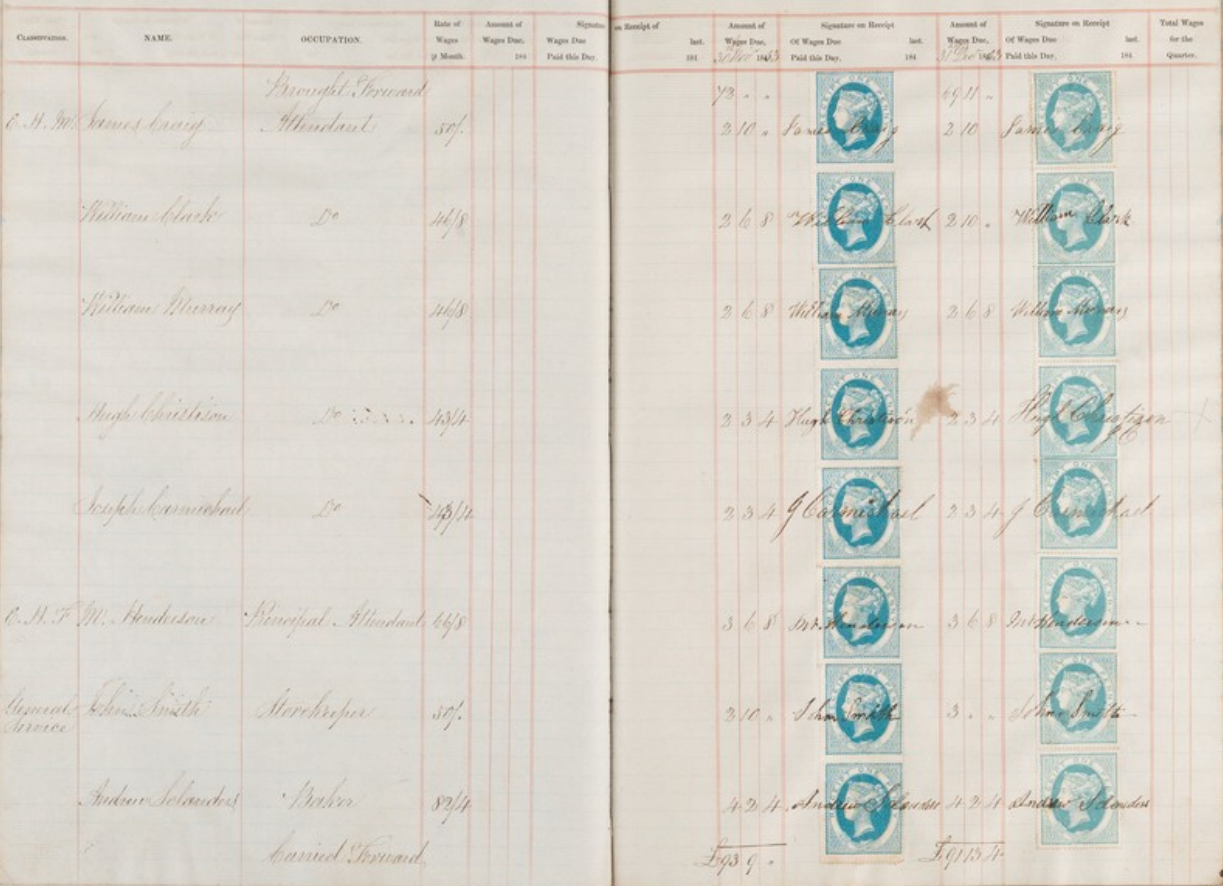 CLASSIFICATION. NAME. OCCUPATION. Rate of Wages ⅌ Month. Amount of Wages Due, 184 Signature Wages Due Paid this Day. on Receipt of last. 184 Amount of Wages Due, 30 Nov 1863 Signature on Receipt Of Wages Due last. Paid this Day. 184 Amount of Wages Due, 31 Dec 1863 Signature on Receipt Of Wages Due last. Paid this Day. 184 Total Wages for the Quarter.
Brought Forward 73 " " 69 11 "
James Craig Attendant 50/. 2 10 " James Craig 2 10 James Craig
William Clark Do 46/8 2 6 8 William Clark 2 10 " William Clark
William Murray Do 46/8 2 6 8 William Murray 2 6 8 William Murray
Hugh Christison Do 43/4 2 3 4 Hugh Christison 2 3 4 Hugh Christison
Joseph Carmichael Do 43/4 2 3 4 J Carmichael 2 3 4 J Carmichael
C. H. F M. Henderson Principal Attendant 66/8 3 6 8 Henderson 3 6 8 Henderson
General Service John Smith Storekeeper 50/. 2 10 " John Smith 3 " " John Smith
Andrew Selanders Baker 82/4 4 2 4 Andrew Selanders 4 2 4 Andrew Selanders
Carried Forward £93 9 " £91 13 4